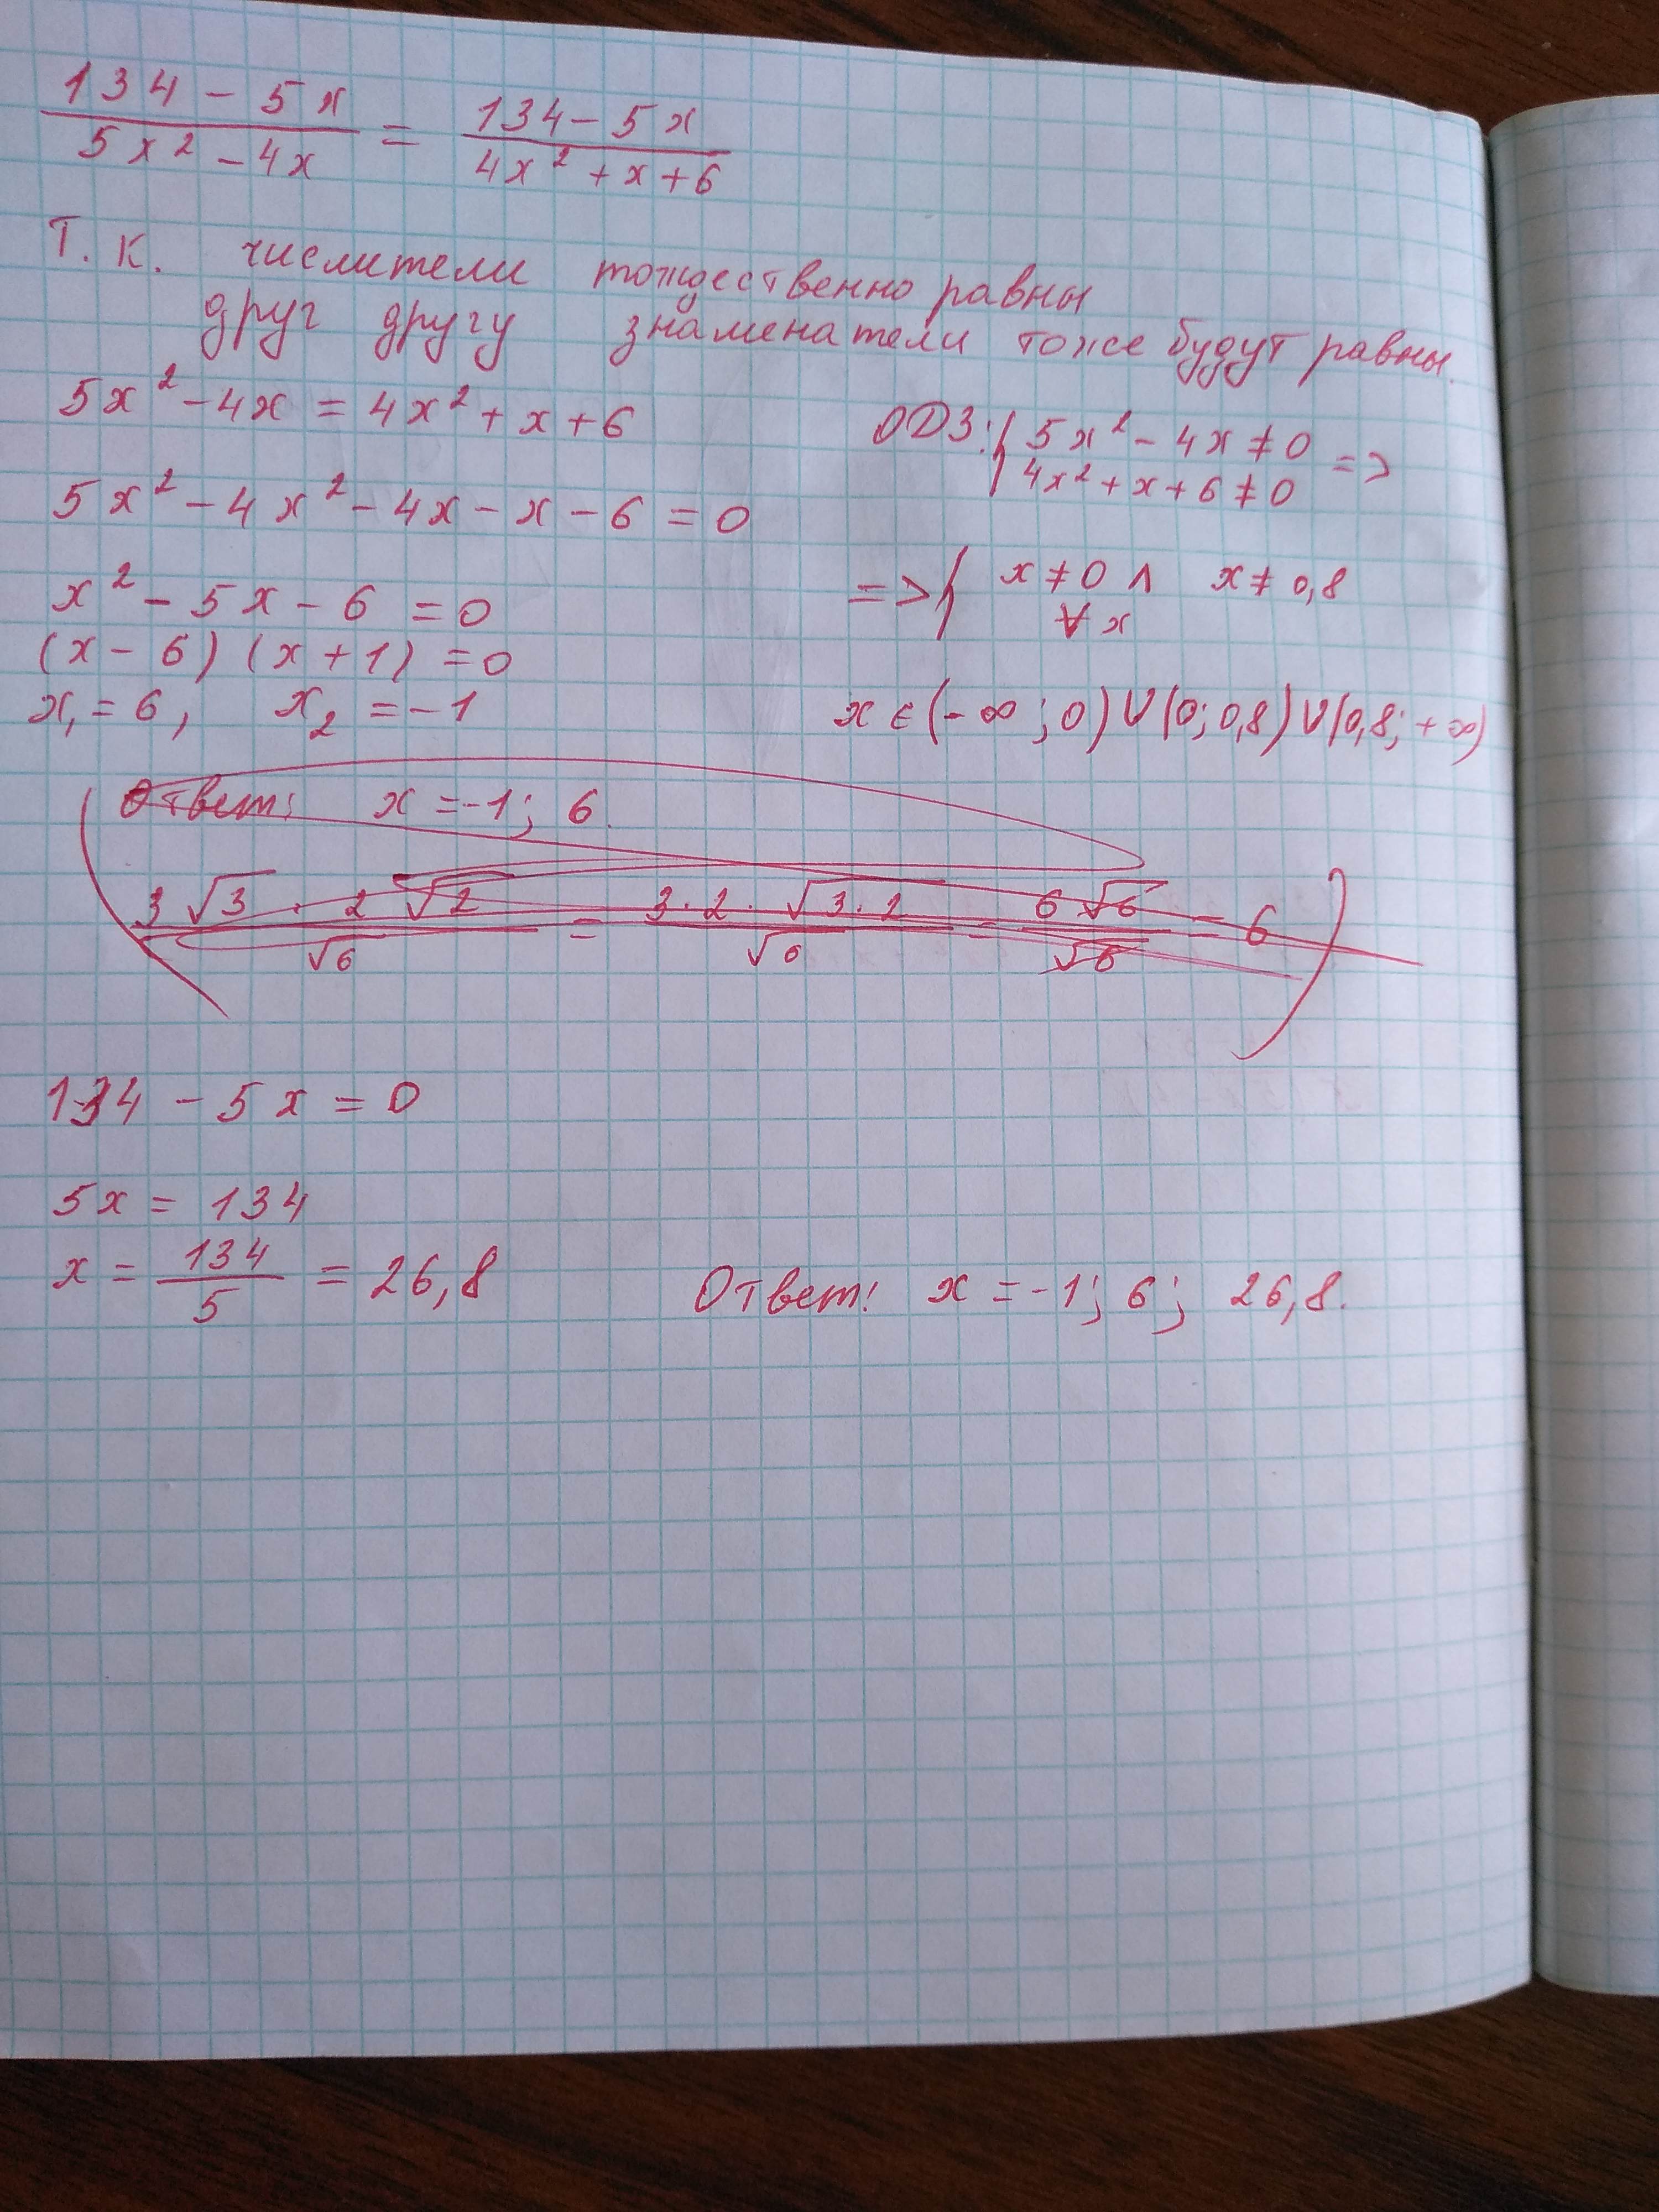 134 - 5x / 5x² - 4x = 134 - 5x / 4x² + x + 6
Т. К. числители тождественно равны
друг другу знаменатели тоже будут равны.
5x² - 4x = 4x² + x + 6
ОДЗ: { 5x² - 4x ≠ 0
4x² + x + 6 ≠ 0 =>
5x² - 4x² - 4x - x - 6 = 0
=> { x ≠ 0 ∧ x ≠ 0,8
∀ x
x² - 5x - 6 = 0
(x - 6) (x + 1) = 0
x₁ = 6, x₂ = -1
x ∈ (-∞; 0) ∪ (0; 0,8) ∪ (0,8; +∞)
Ответ: x = -1; 6.
3√3 · 2√2 / √6 = 3·2·√3·2 / √6 = 6√6 / √6 = 6
134 - 5x = 0
5x = 134
x = 134 / 5 = 26,8
Ответ: x = -1; 6; 26,8.